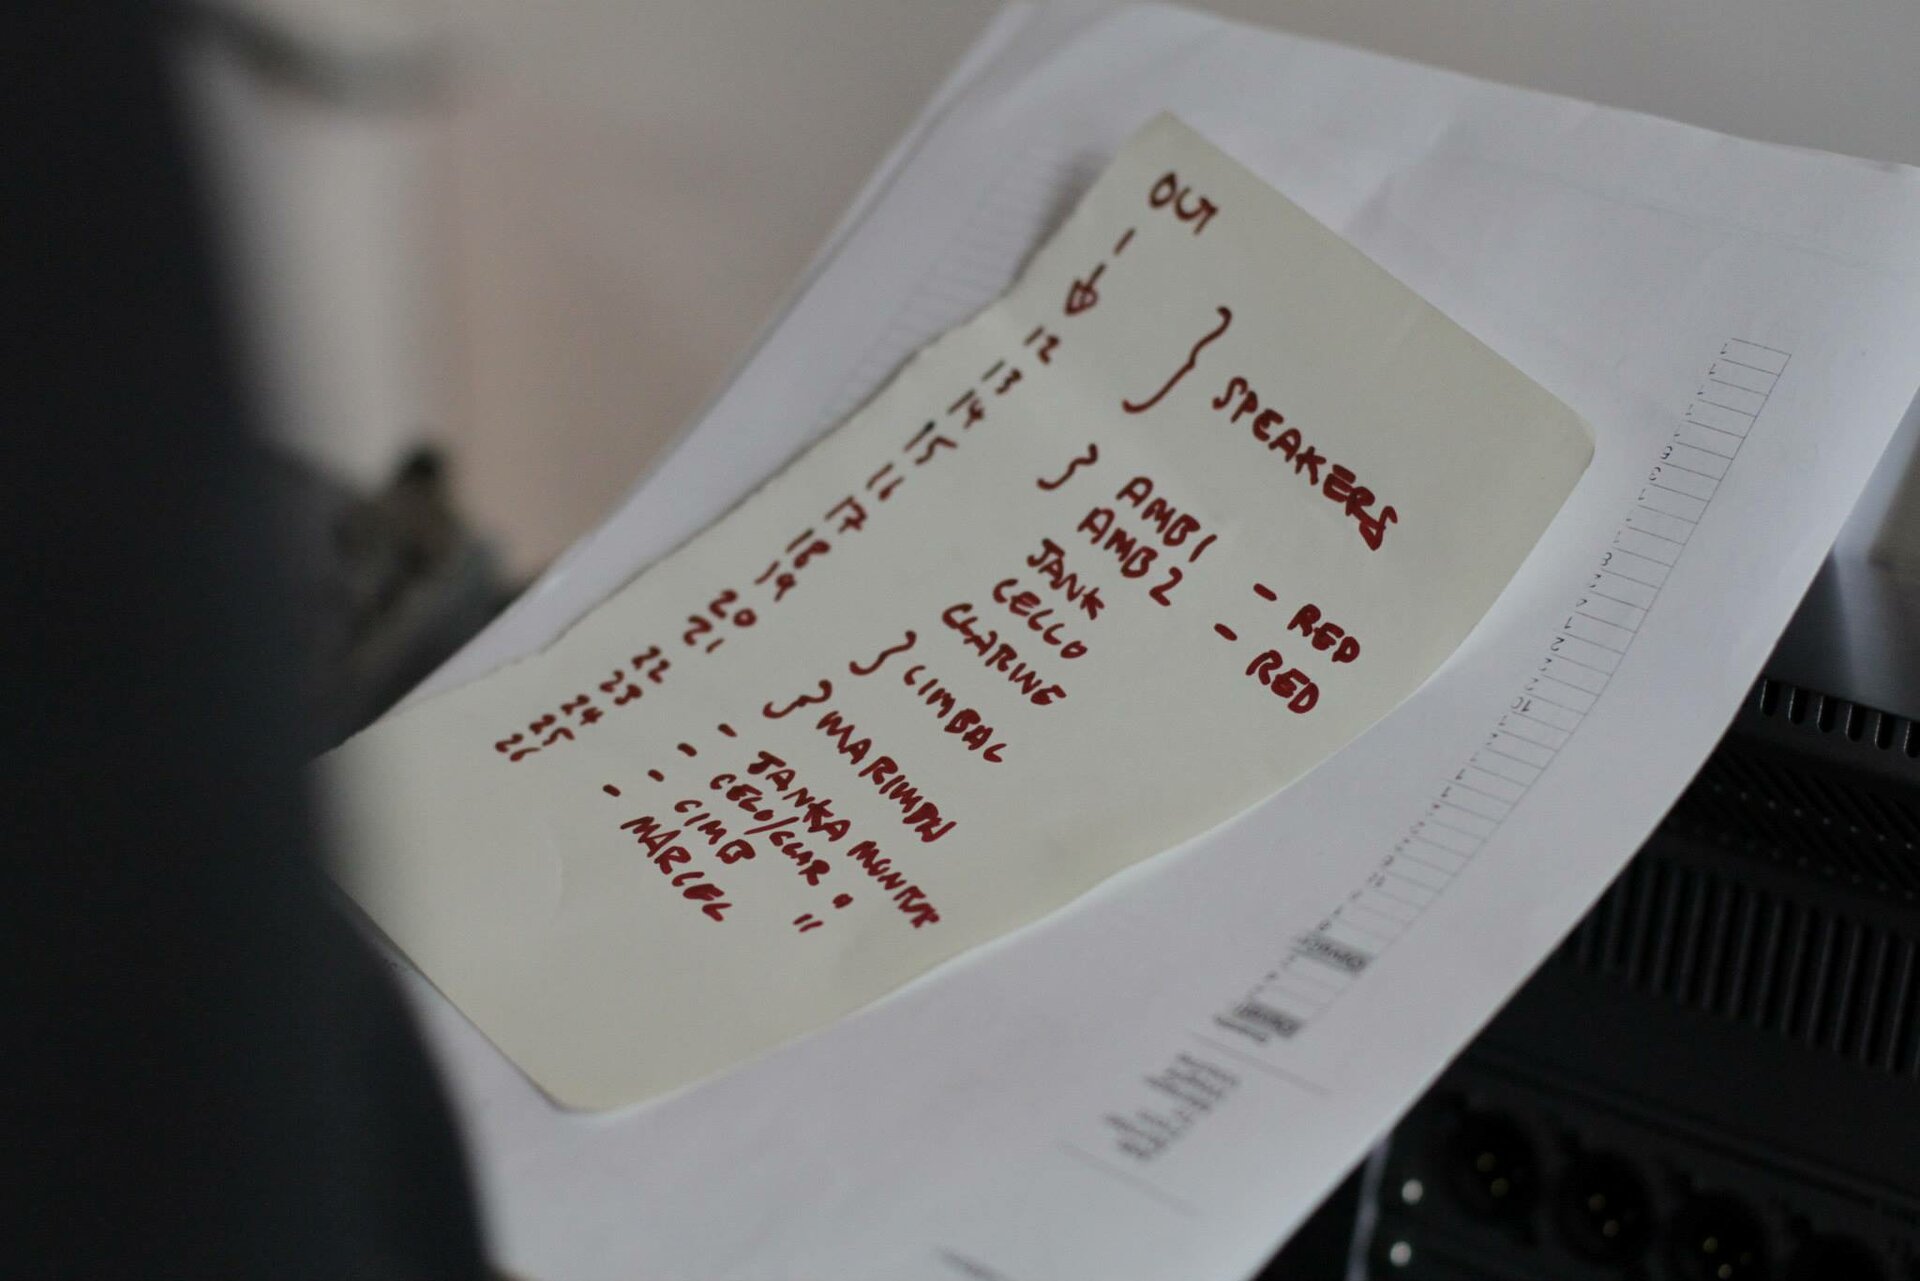 OUT
1
↓ } SPEAKERS
12
13 } AMB1 - RED
14 AMB2 - RED
15 JANK
16 CELLO
17 CLARINE
18 } CIMBAL
19
20 } MARIMBA
21
22 - JANKA MONITOR
23 - CELO/CLAR "
24 - CIMB "
25 - MARCEL
26